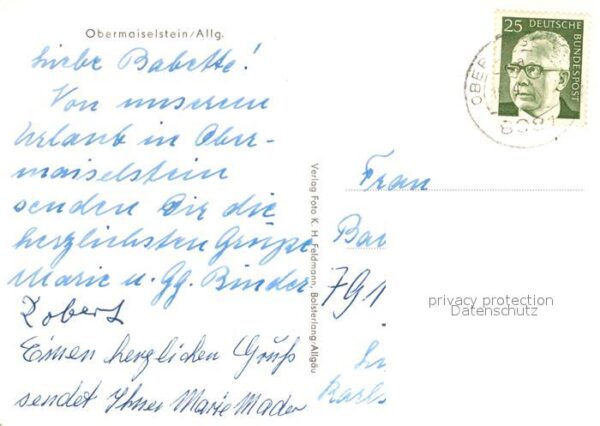 Obermaiselstein/Allg.
Liebe Babette!
Von unserem
Urlaub in Ober-
maiselstein
senden Dir die
herzlichsten Grüße
Marie u. Gg. Binder
Robert
Einen herzlichen Gruß
sendet Ihnen Marie Mader
Verlag Foto K. H. Feldmann, Bolsterlang-Allgäu
25 DEUTSCHE
BUNDESPOST
OBER
Frau
Ba
791
privacy protection
Datenschutz
Karls